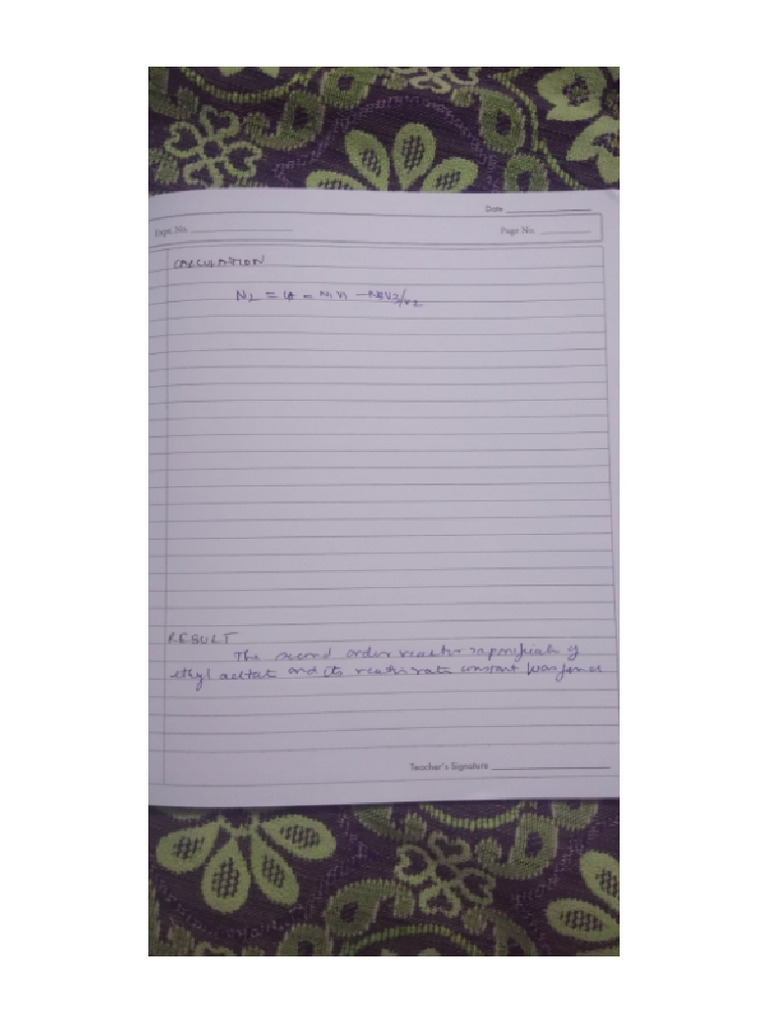 Date
Expt. No.
Page No.
CALCULATION
N2 = CA = N1 V1 - N3 V3/V2
RESULT
The second order reactor saponificatn of
ethyl acetat and its reacti rate constant was
Teacher's Signature